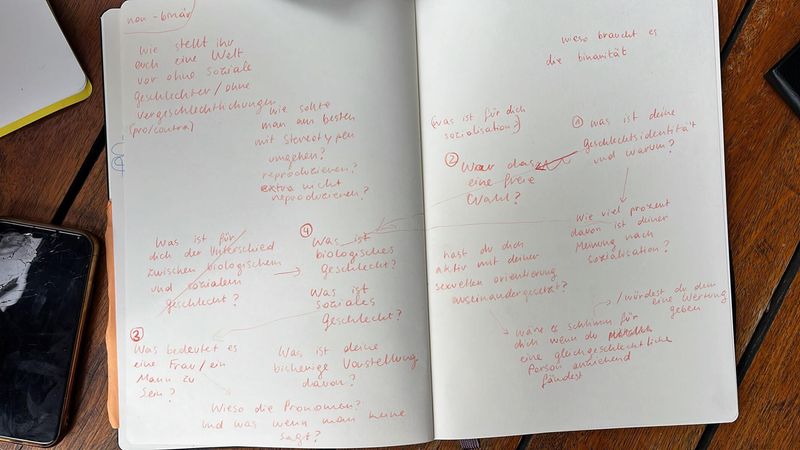 non-binär
wie stellt ihr
euch eine Welt
vor ohne soziale
geschlechter/ohne
vergeschlechtlichungen
(pro/contra)
wie sollte
man am besten
mit Stereotypen
umgehen?
reproduzieren?
extra nicht
reproduzieren?
Was ist für
dich der Unterschied
zwischen biologischem
und sozialem
geschlecht?
④ Was ist
biologisches
geschlecht?
Was ist
soziales
geschlecht?
③
Was bedeutet es
eine Frau/ein
Mann zu
sein?
Was ist deine
bisherige Vorstellung
davon?
Wieso die Pronomen?
Und was wenn man keine
sagt?
wieso braucht es
die binarität
(was ist für dich
sozialisation?)
① was ist deine
geschlechtsidentität
und warum?
② War das
eine freie
Wahl?
Wie viel prozent
davon ist deiner
Meinung nach
sozialisation?
hast du dich
aktiv mit deiner
sexuellen orientierung
auseinandergesetzt?
/würdest du dem
eine Wertung
geben
wäre es schlimm für
dich wenn du
eine gleichgeschlechtliche
Person anziehend
fändest